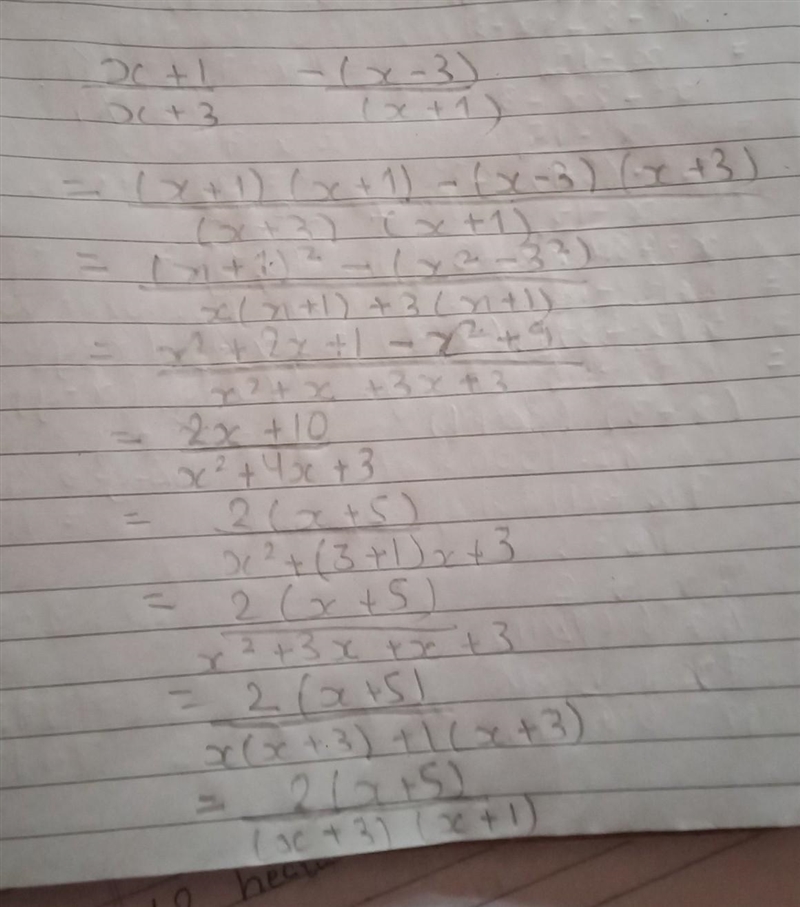 x+1 -(x-3)
x+3 (x+1)
= (x+1) (x+1) - (x-3) (x+3)
(x+3) (x+1)
= (x+1)² - (x² - 3²)
x(x+1) + 3(x+1)
= x² + 2x + 1 - x² + 9
x² + x + 3x + 3
= 2x + 10
x² + 4x + 3
= 2(x+5)
x² + (3+1)x + 3
= 2(x+5)
x² + 3x + x + 3
= 2(x+5)
x(x+3) + 1(x+3)
= 2(x+5)
(x+3) (x+1)